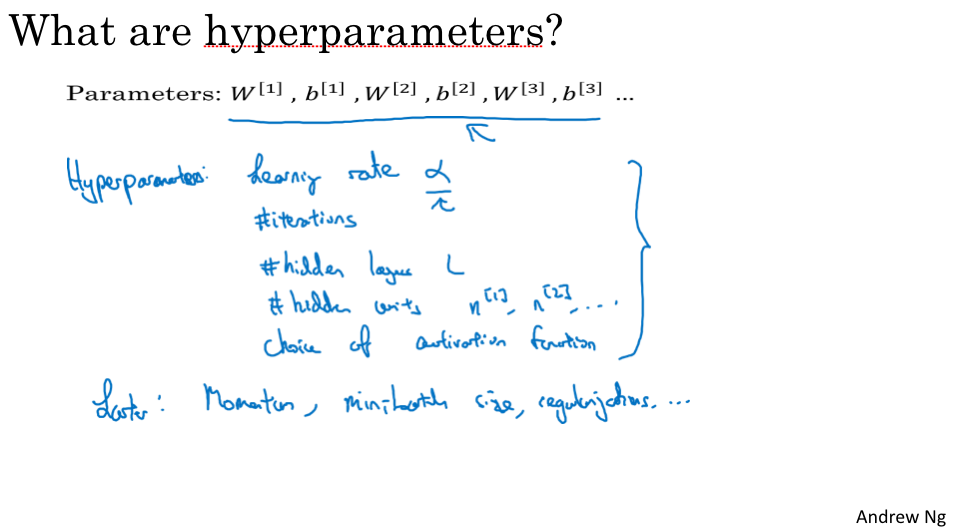 What are hyperparameters?
Parameters: W[1] , b[1] , W[2] , b[2] , W[3] , b[3] ...
Hyperparameters: Learning rate α
#iterations
#hidden layers L
# hidden units n[1], n[2], ....
choice of activation function
Later: Momentum, minibatch size, regularizations, ...
Andrew Ng